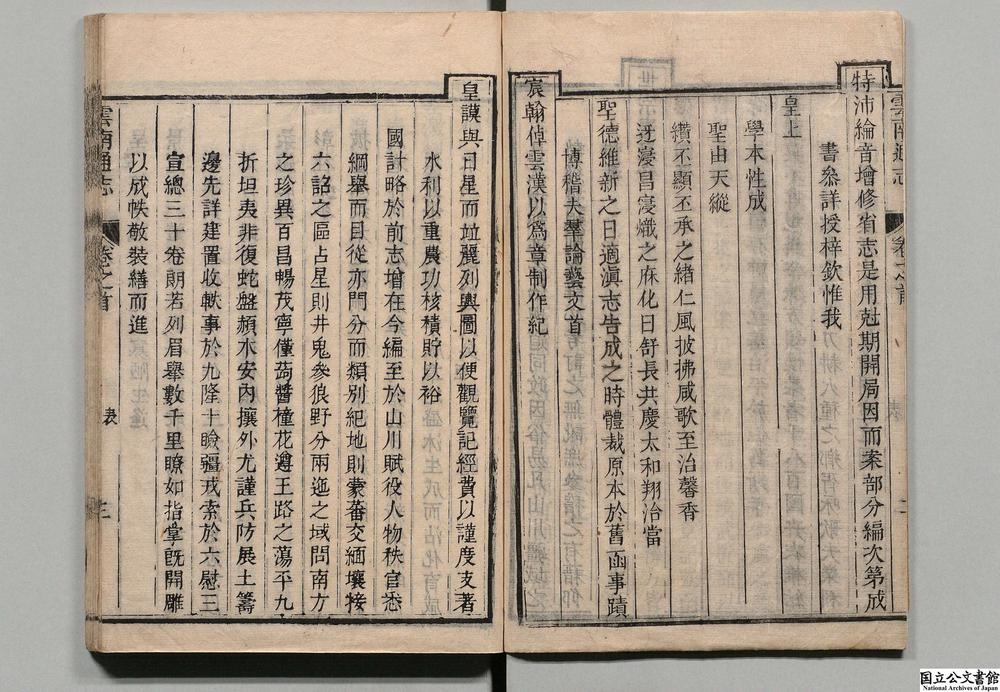 特沛綸音增修省志是用尅期開局因而案部分編次第成
書叅詳授梓欽惟我
皇上
學本性成
聖由天縱
纘丕顯丕承之緒仁風披拂咸歌至治馨香
迓寖昌寖熾之庥化日舒長共慶太和翔洽當
聖德維新之日適滇志告成之時體裁原本於舊函事蹟
博稽夫羣論藝文首
宸翰倬雲漢以爲章制作紀
皇謨與日星而竝麗列輿圖以便觀覽記經費以謹度支著
水利以重農功核積貯以裕
國計略於前志增在今編至於山川賦役人物秩官悉
綱舉而目從亦門分而類別紀地則蒙番交緬壤接
六詔之區占星則井鬼參狼野分兩迤之域問南方
之珍異百昌暢茂寧僅蒟醬橦花遵王路之蕩平九
折坦夷非復蛇盤頫水安內攘外尤謹兵防展土籌
邊先詳建置收軼事於九隆十瞼疆戎索於六慰三
宣總三十卷朗若列眉舉數千里瞭如指掌旣開雕
以成帙敬裝繕而進
雲南通志
卷之首
表
三
國立公文書館
National Archives of Japan